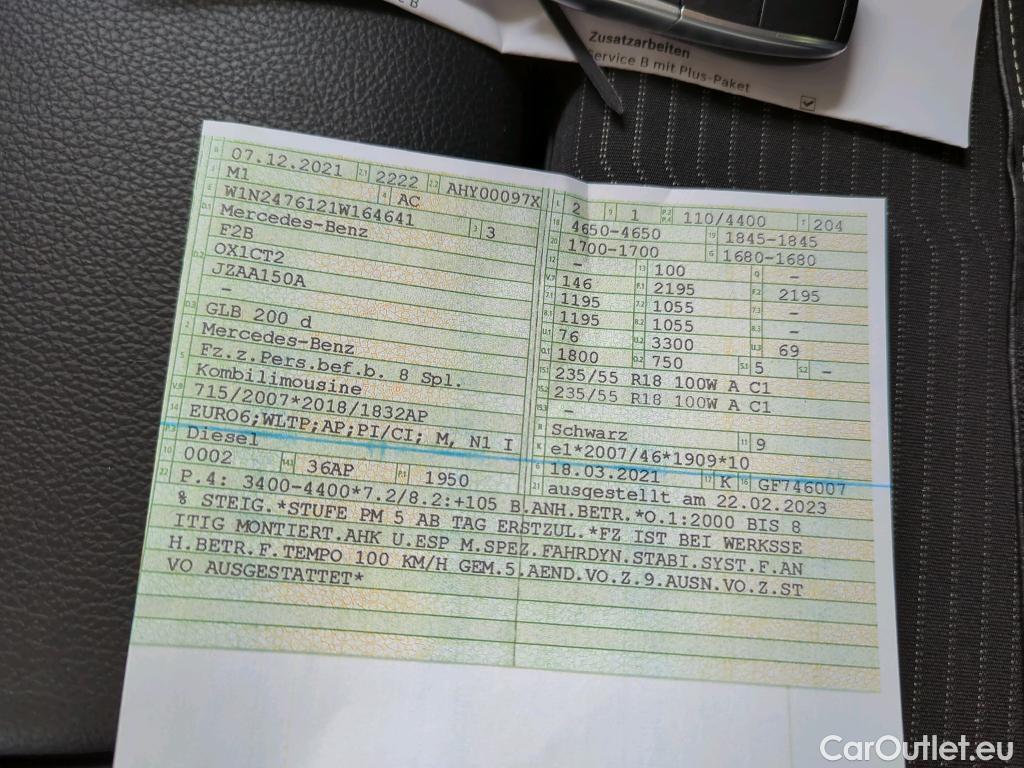 e B
Zusatzarbeiten
Service B mit Plus-Paket
B 07.12.2021 2.1 2222 2.2 AHY00097X
J M1 4 AC
E W1N2476121W164641 3 3
D.1 Mercedes-Benz
F2B
D.2 OX1CT2
JZAA150A
–
D.3 GLB 200 d
2 Mercedes-Benz
5 Fz.z.Pers.bef.b. 8 Spl.
Kombilimousine
V.9 715/2007*2018/1832AP
14 EURO6;WLTP;AP;PI/CI; M, N1 I
P.3 Diesel
10 0002 14.1 36AP P.1 1950
L 2 9 1 P.2 P.4 110/4400 T 204
18 4650-4650 19 1845-1845
20 1700-1700 G 1680-1680
12 – 13 100 Q –
V.7 146 F.1 2195 F.2 2195
7.1 1195 7.2 1055 7.3 –
8.1 1195 8.2 1055 8.3 –
U.1 76 U.2 3300 U.3 69
O.1 1800 O.2 750 S.1 5 S.2 –
15.1 235/55 R18 100W A C1
15.2 235/55 R18 100W A C1
15.3 –
R Schwarz 11 9
K e1*2007/46*1909*10
6 18.03.2021 17 K 16 GF746007
21 ausgestellt am 22.02.2023
22 P.4: 3400-4400*7.2/8.2:+105 B.ANH.BETR.*O.1:2000 BIS 8
% STEIG.*STUFE PM 5 AB TAG ERSTZUL.*FZ IST BEI WERKSSE
ITIG MONTIERT.AHK U.ESP M.SPEZ.FAHRDYN.STABI.SYST.F.AN
H.BETR.F.TEMPO 100 KM/H GEM.5.AEND.VO.Z.9.AUSN.VO.Z.ST
VO AUSGESTATTET*
CarOutlet.eu